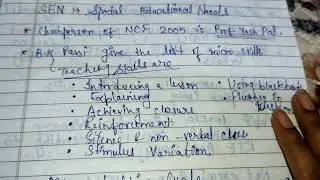 SEN → Special Educational Needs
* Chairperson of NCF 2005 is Prof. Yash Pal.
* B.K Passi give the list of micro skills
(Teaching) Skills are
• Introducing a lesson
• Using blackboard
• Explaining
• Achieving closure
• Reinforcement
• Silence & non-verbal clues
• Stimulus Variation